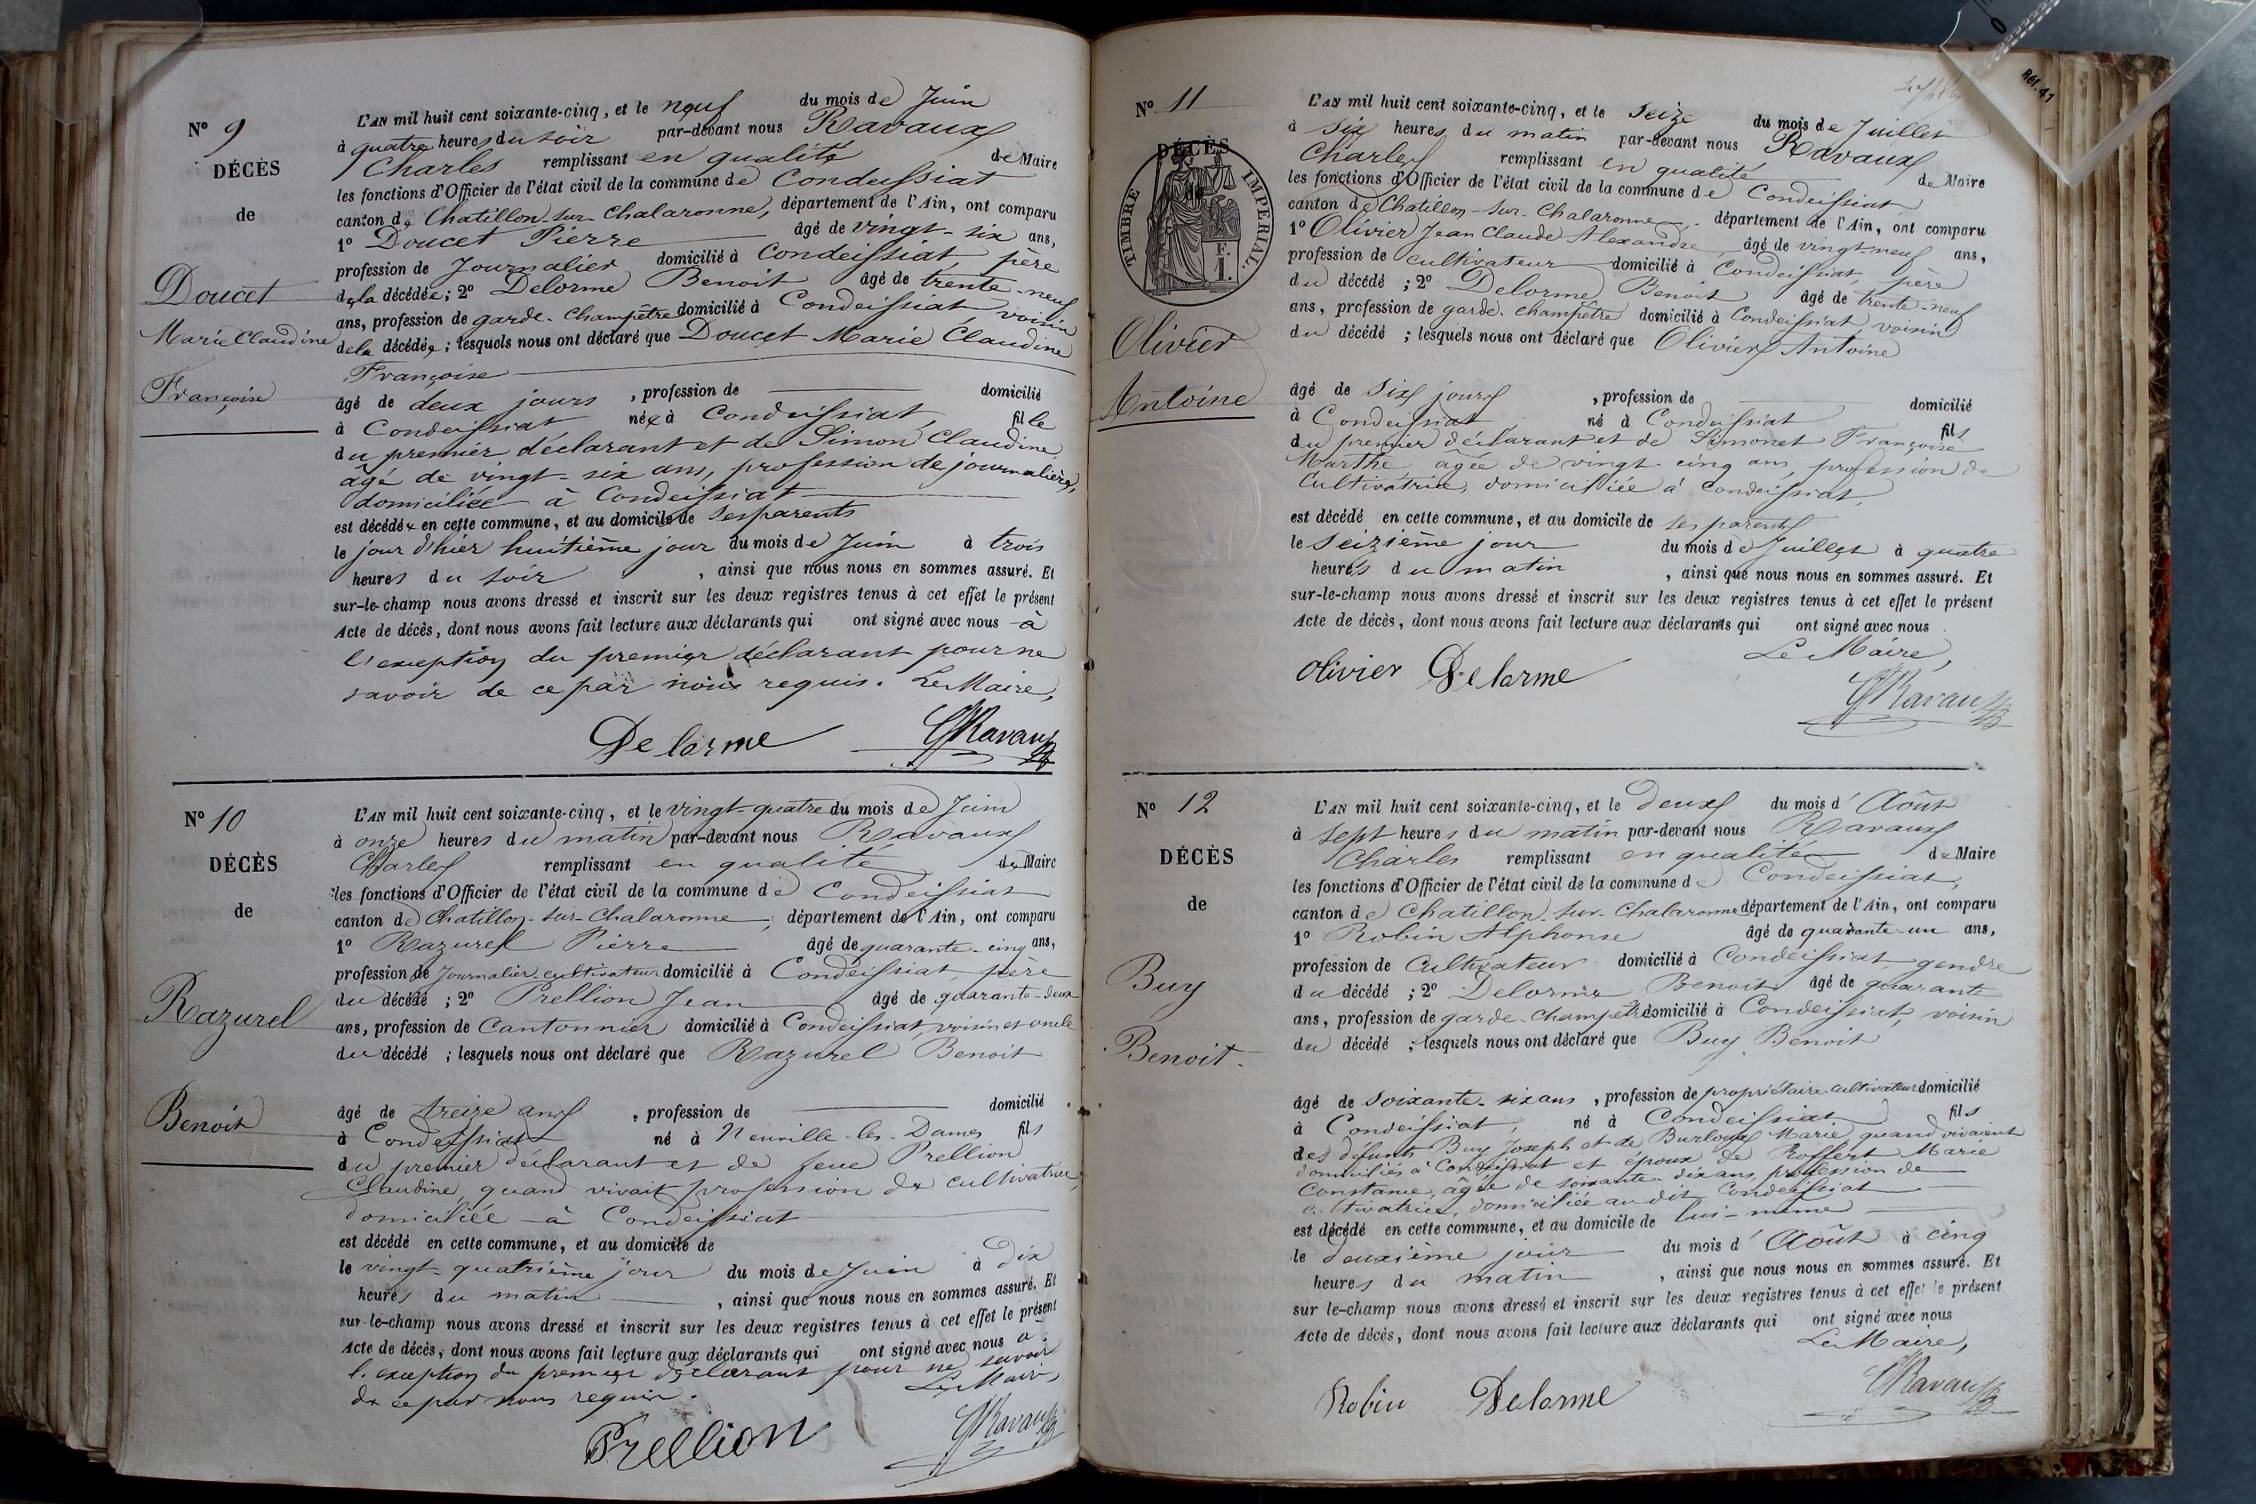 Nº 9
DÉCÈS
de
Doucet
Marie Claudine
Françoise
L'AN mil huit cent soixante-cinq, et le neuf du mois de Juin
à quatre heures du soir par-devant nous Ravaux
Charles remplissant en qualité de Maire
les fonctions d'Officier de l'état civil de la commune de Condeissiat
canton de Chatillon-sur-Chalaronne, département de l'Ain, ont comparu
1º Doucet Pierre âgé de vingt-six ans,
profession de Journalier domicilié à Condeissiat, père
de la décédée; 2º Delorme Benoit âgé de trente-neuf
ans, profession de garde-Champêtre domicilié à Condeissiat voisin
de la décédée; lesquels nous ont déclaré que Doucet Marie Claudine
Françoise
âgé de deux jours, profession de domicilié
à Condeissiat née à Condeissiat, fille
du premier déclarant et de Simon Claudine,
âgé de vingt-six ans, profession de journalière,
domiciliée à Condeissiat
est décédée en cette commune, et au domicile de ses parents
le jour d'hier huitième jour du mois de Juin à trois
heures du soir, ainsi que nous nous en sommes assuré. Et
sur-le-champ nous avons dressé et inscrit sur les deux registres tenus à cet effet le présent
Acte de décès, dont nous avons fait lecture aux déclarants qui ont signé avec nous à
l'exception du premier déclarant pour ne
savoir de ce par nous requis. Le Maire,
Delorme CRavaux
Nº 10
DÉCÈS
de
Razurel
Benoit
L'AN mil huit cent soixante-cinq, et le vingt-quatre du mois de Juin
à onze heures du matin par-devant nous Ravaux
Charles remplissant en qualité de Maire
les fonctions d'Officier de l'état civil de la commune de Condeissiat
canton de Chatillon-sur-Chalaronne, département de l'Ain, ont comparu
1º Razurel Pierre âgé de quarante-cinq ans,
profession de Journalier-cultivateur domicilié à Condeissiat, père
du décédé; 2º Prellion Jean âgé de quarante-deux
ans, profession de Cantonnier domicilié à Condeissiat, voisin et oncle
du décédé; lesquels nous ont déclaré que Razurel Benoit
âgé de treize ans, profession de domicilié
à Condeissiat né à Neuville-les-Dames fils
du premier déclarant et de feue Prellion
Claudine, quand vivait profession de cultivatrice,
domiciliée à Condeissiat
est décédé en cette commune, et au domicile de
le vingt-quatrième jour du mois de Juin à Dix
heures du matin, ainsi que nous nous en sommes assuré. Et
sur-le-champ nous avons dressé et inscrit sur les deux registres tenus à cet effet le présent
Acte de décès, dont nous avons fait lecture aux déclarants qui ont signé avec nous à
l'exception du premier déclarant pour ne savoir
de ce par nous requis. Le Maire,
Prellion CRavaux
Réf. 41
Nº 11
DÉCÈS
TIMBRE IMPERIAL.
1 F.
Olivier
Antoine
L'AN mil huit cent soixante-cinq, et le seize du mois de Juillet
à six heures du matin par-devant nous Ravaux
Charles remplissant en qualité de Maire
les fonctions d'Officier de l'état civil de la commune de Condeissiat
canton de Chatillon-sur-Chalaronne, département de l'Ain, ont comparu
1º Olivier Jean Claude Alexandre âgé de vingt-neuf ans,
profession de cultivateur domicilié à Condeissiat, père
du décédé; 2º Delorme Benoit âgé de trente-neuf
ans, profession de garde-champêtre domicilié à Condeissiat, voisin
du décédé; lesquels nous ont déclaré que Olivier Antoine
âgé de six jours, profession de domicilié
à Condeissiat, né à Condeissiat fils
du premier déclarant et de Simonet Françoise
Marthe, âgée de vingt-cinq ans, profession de
Cultivatrice, domiciliée à Condeissiat,
est décédé en cette commune, et au domicile de ses parents
le seizième jour du mois de Juillet à quatre
heures du matin, ainsi que nous nous en sommes assuré. Et
sur-le-champ nous avons dressé et inscrit sur les deux registres tenus à cet effet le présent
Acte de décès, dont nous avons fait lecture aux déclarants qui ont signé avec nous
Le Maire,
Olivier Delorme CRavaux
Nº 12
DÉCÈS
de
Buy
Benoit.
L'AN mil huit cent soixante-cinq, et le Deux du mois d'Août
à sept heures du matin par-devant nous Ravaux
Charles remplissant en qualité de Maire
les fonctions d'Officier de l'état civil de la commune de Condeissiat,
canton de Chatillon-sur-Chalaronne département de l'Ain, ont comparu
1º Robin Alphonse âgé de quarante-un ans,
profession de Cultivateur domicilié à Condeissiat, gendre
du décédé; 2º Delorme Benoit âgé de quarante
ans, profession de garde-champêtre domicilié à Condeissiat, voisin
du décédé; lesquels nous ont déclaré que Buy Benoit
âgé de soixante-six ans, profession de propriétaire-cultivateur domicilié
à Condeissiat, né à Condeissiat fils
des défunts Buy Joseph et de Burloux Marie, quand vivaient
domiciliés à Condeissiat et époux de Roffert Marie
Constance, âgée de soixante-dix ans, profession de
cultivatrice, domiciliée au dit Condeissiat
est décédé en cette commune, et au domicile de lui-même
le deuxième jour du mois d'Août à cinq
heures du matin, ainsi que nous nous en sommes assuré. Et
sur-le-champ nous avons dressé et inscrit sur les deux registres tenus à cet effet le présent
Acte de décès, dont nous avons fait lecture aux déclarants qui ont signé avec nous
Le Maire,
Robin Delorme CRavaux